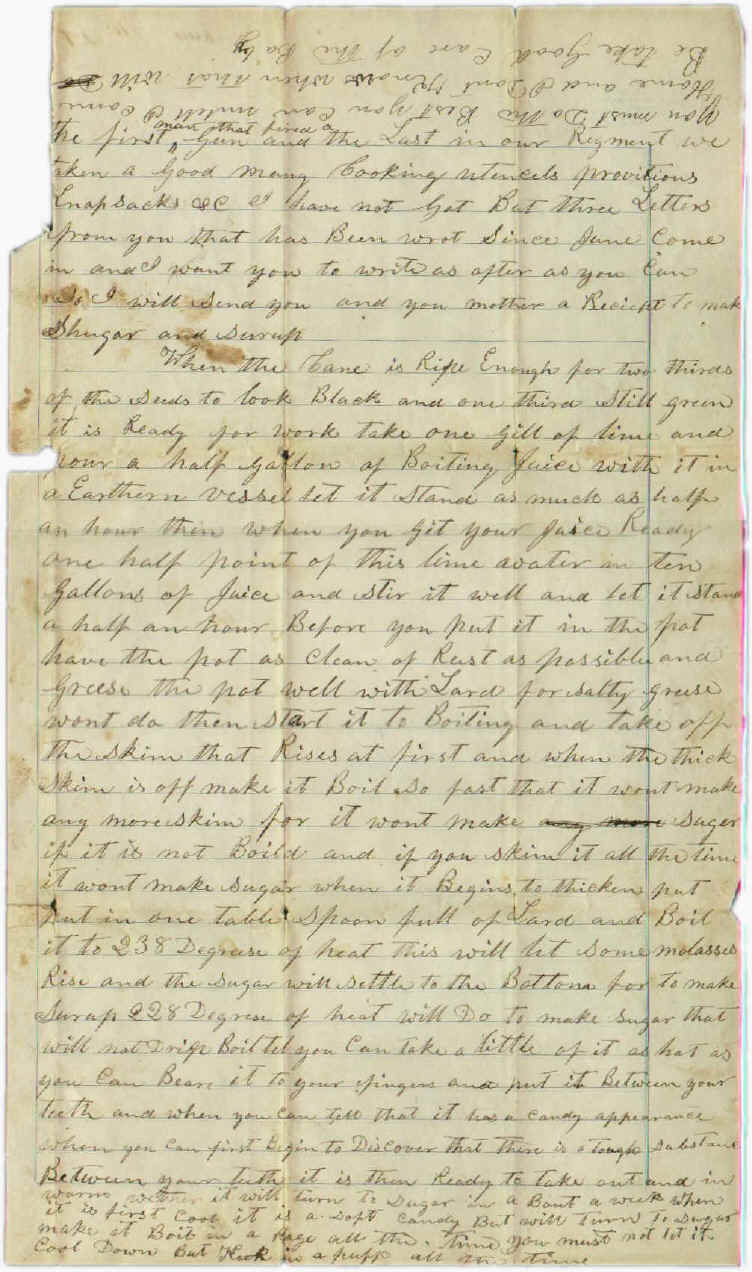 the first man that fired a Gun and the Last in our Regment we
taken a Good many Cooking utencels provitions
Knapsacks &C I have not Got But three Letters
from you that has Been wrot Since June Come
in and I want you to write as often as you Can
So I will Send you and you mother a Reciept to make
Shugar and Surrup
When the Cane is Ripe Enough for two thirds
of the Seeds to look Black and one third Still green
it is Ready for work take one gill of lime and
pour a half gallon of Boiling Juice with it in
a Earthern vessel let it Stand as much as half
an hour then when you git your Juice Ready
one half point of this lime water in ten
Gallons of Juice and Stir it well and let it Stand
a half an hour Before you put it in the pot
have the pot as Clean of Rust as possible and
Greese the pot well with Lard for salty greese
wont do then start it to Boiling and take off
the Skim that Rises at first and when the thick
Skim is off make it Boil So fast that it wont make
any more Skim for it wont make any more Suger
if it is not Boild and if you Skim it all the time
it wont make Sugar when it Begins to thicken put
put in one table Spoon full of Lard and Boil
it to 238 Degrese of heat this will let Some molasses
Rise and the Sugar will settle to the Bottom for to make
Surup 228 Degrese of heat will Do to make Sugar that
will not Drip Boil tel you Can take a little of it as hot as
you Can Bear it to your fingers and put it Between your
teeth and when you Can tell that it has a Candy appearance
when you Can first Begin to Discover that there is a tough Substane
Between your teeth it is then Ready to take out and in
warm wether it will turn to Sugar in a Bout a week when
it is first Cool it is a Soft Candy But will turn to Sugar
make it Boil in a Rage all the time you must not let it
Cool Down But Keek in a puff all the time
You must Do the Best you Can untell I Come
Home and I Dont Know when that will
Be take Good Care of the Baby